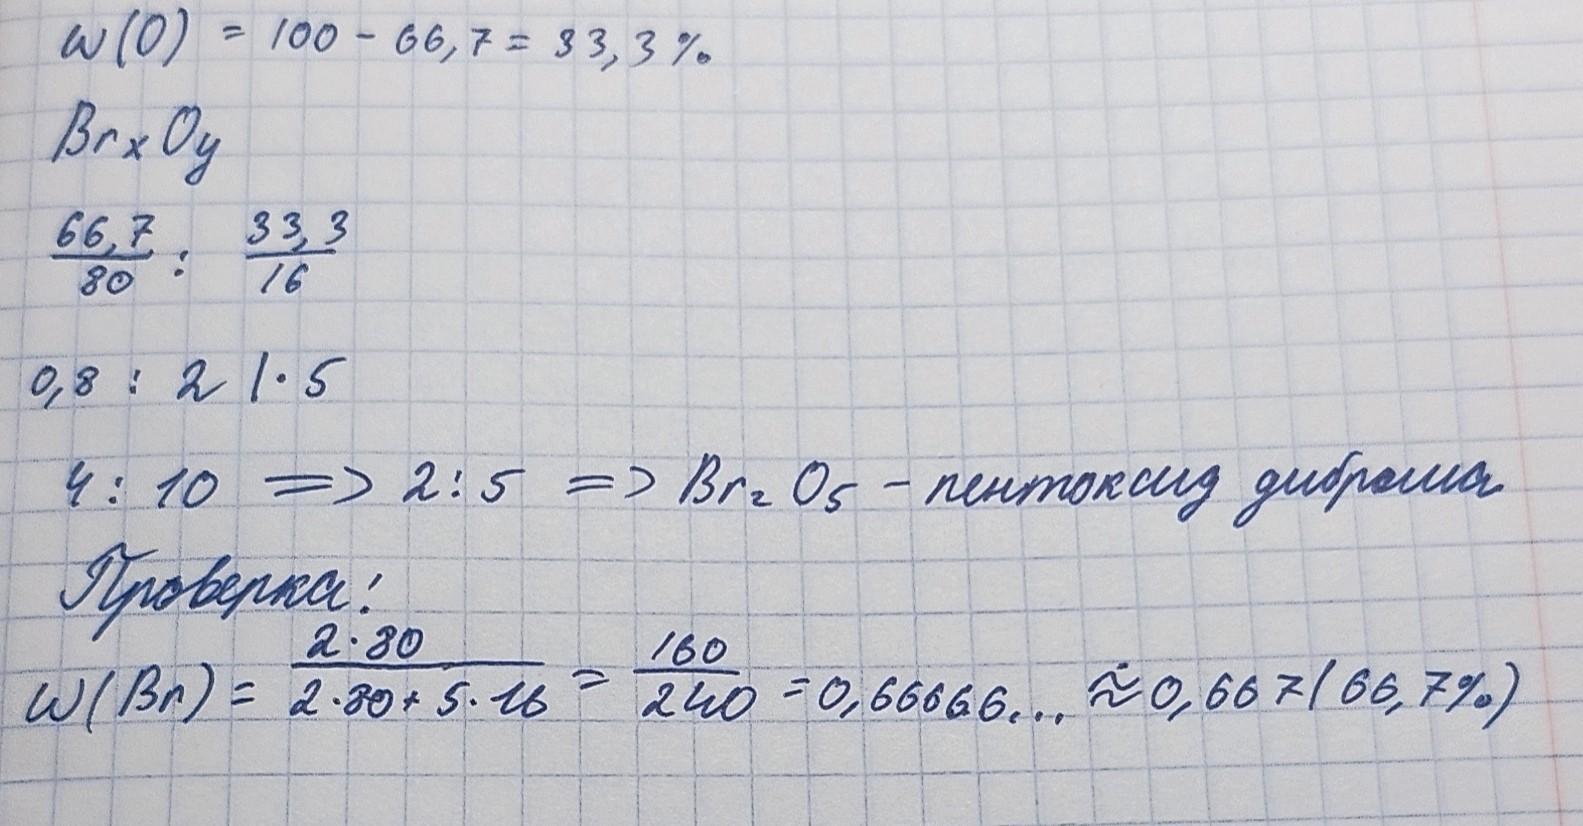 w(O) = 100 - 66,7 = 33,3%
BrxOy
66,7/80 : 33,3/16
0,8 : 2 |·5
4 : 10 => 2:5 => Br₂O₅ - пентоксид диброма
Проверка:
w(Br) = 2·80/2·80+5·16 = 160/240 = 0,66666... ≈ 0,667 (66,7%)